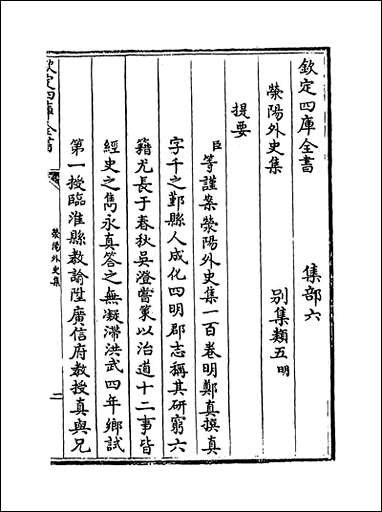 欽定四庫全書
集部六
滎陽外史集
别集類五明
提要
臣等謹案滎陽外史集一百卷明鄭真撰真
字千之鄞縣人成化四明郡志稱其研窮六
籍尤長于春秋吳澄嘗策以治道十二事皆
經史之雋永真答之無凝滯洪武四年鄉試
第一授臨淮縣教諭陞廣信府教授真與兄
欽定四庫全書
滎陽外史集